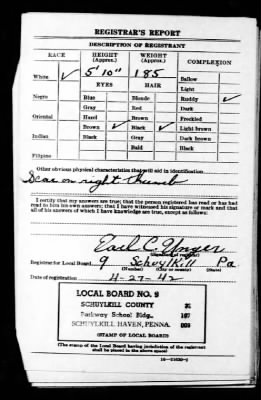 REGISTRAR'S REPORT
DESCRIPTION OF REGISTRANT
RACE HEIGHT (Approx.) WEIGHT (Approx.) COMPLEXION
White ✓ 5' 10" 185 Sallow
EYES HAIR Light
Negro Blue Blonde Ruddy ✓
Gray Red Dark
Oriental Hazel Brown Freckled
Brown ✓ Black ✓ Light brown
Indian Black Gray Dark brown
Bald Black
Filipino
Other obvious physical characteristics that will aid in identification
Scar on right thumb
I certify that my answers are true; that the person registered has read or has had
read to him his own answers; that I have witnessed his signature or mark and that
all of his answers of which I have knowledge are true, except as follows:
Earl C. Unger
(Signature of registrar)
Registrar for Local Board 9 Schuylkill Pa
(Number) (City or county) (State)
Date of registration 4-27-42
LOCAL BOARD NO. 9
SCHUYLKILL COUNTY 31
Parkway School Bldg., 107
SCHUYLKILL HAVEN, PENNA. 009
(STAMP OF LOCAL BOARD)
(The stamp of the Local Board having jurisdiction of the registrant
shall be placed in the above space.)